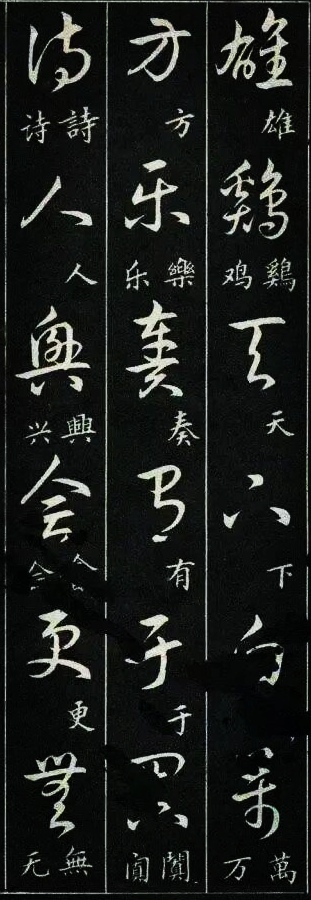 雄雄鷄鷄鸡天天下下白萬萬万
方方乐樂乐奏奏有有于于闐闐阗
诗詩诗人人興興兴会更更無無无